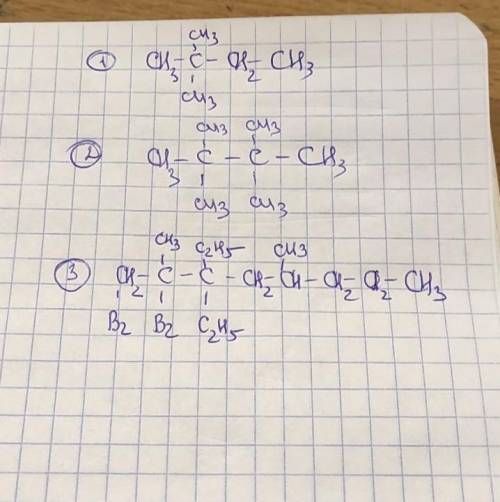 CH3
① CH3 - C - CH2 - CH3
CH3
CH3 CH3
② CH3 - C - C - CH3
CH3 CH3
CH3 C2H5 CH3
③ CH2 - C - C - CH2 - CH - CH2 - CH2 - CH3
B2 B2 C2H5